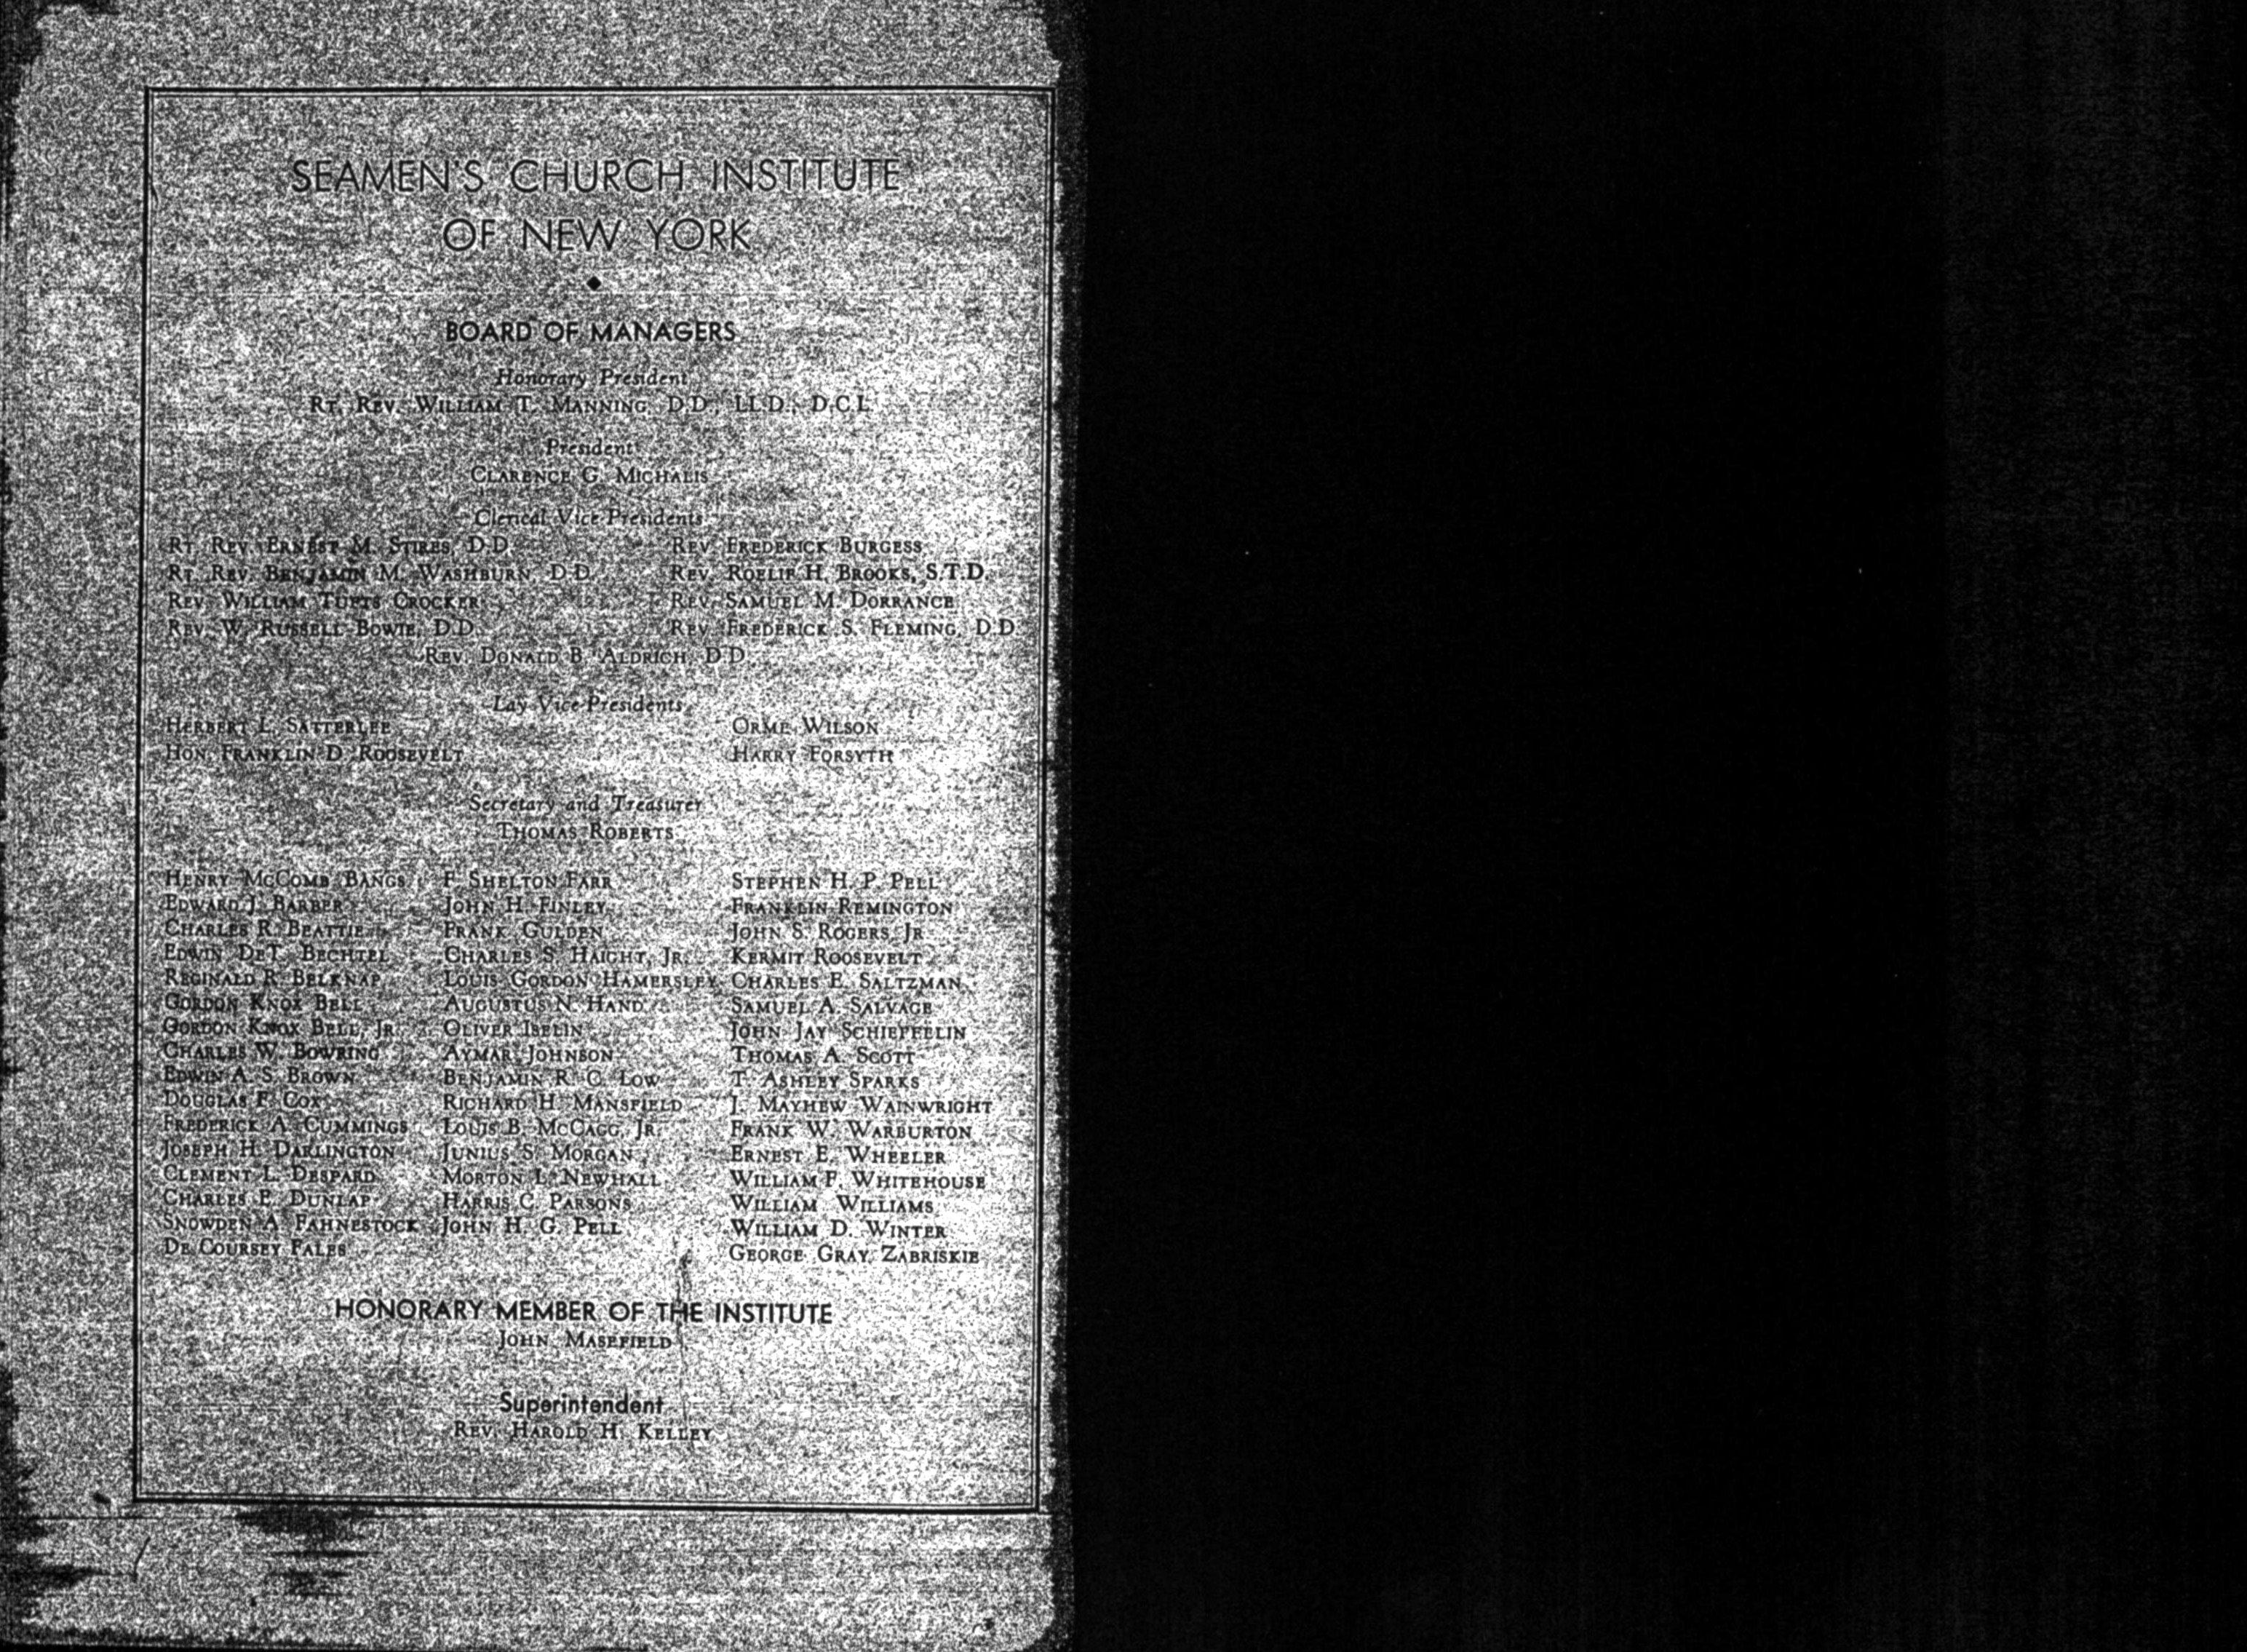 SEAMEN'S CHURCH INSTITUTE
OF NEW YORK
BOARD OF MANAGERS
Honorary President
RT. REV. WILLIAM T. MANNING, D.D., LL.D., D.C.L.
President
CLARENCE G. MICHALIS
Clerical Vice-Presidents
RT. REV. ERNEST M. STIRES, D.D.
RT. REV. BENJAMIN M. WASHBURN, D.D.
REV. WILLIAM TUFTS CROCKER
REV. W. RUSSELL BOWIE, D.D.
REV. FREDERICK BURGESS
REV. ROELIF H. BROOKS, S.T.D.
REV. SAMUEL M. DORRANCE
REV. FREDERICK S. FLEMING, D.D.
REV. DONALD B. ALDRICH, D.D.
Lay Vice-Presidents
HERBERT L. SATTERLEE
HON. FRANKLIN D. ROOSEVELT
ORME WILSON
HARRY FORSYTH
Secretary and Treasurer
THOMAS ROBERTS
HENRY MCCOMB BANGS
EDWARD J. BARBER
CHARLES R. BEATTIE
EDWIN DET. BECHTEL
REGINALD R. BELKNAP
GORDON KNOX BELL
GORDON KNOX BELL, JR.
CHARLES W. BOWRING
EDWIN A. S. BROWN
DOUGLAS F. COX
FREDERICK A. CUMMINGS
JOSEPH H. DARLINGTON
CLEMENT L. DESPARD
CHARLES E. DUNLAP
SNOWDEN A. FAHNESTOCK
DE COURSEY FALES
F. SHELTON FARR
JOHN H. FINLEY
FRANK GULDEN
CHARLES S. HAIGHT, JR.
LOUIS GORDON HAMERSLEY
AUGUSTUS N. HAND
OLIVER ISELIN
AYMAR JOHNSON
BENJAMIN R. C. LOW
RICHARD H. MANSFIELD
LOUIS B. MCCAGG, JR.
JUNIUS S. MORGAN
MORTON L. NEWHALL
HARRIS C. PARSONS
JOHN H. G. PELL
STEPHEN H. P. PELL
FRANKLIN REMINGTON
JOHN S. ROGERS, JR.
KERMIT ROOSEVELT
CHARLES E. SALTZMAN
SAMUEL A. SALVAGE
JOHN JAY SCHIEFFELIN
THOMAS A. SCOTT
T. ASHLEY SPARKS
J. MAYHEW WAINWRIGHT
FRANK W. WARBURTON
ERNEST E. WHEELER
WILLIAM F. WHITEHOUSE
WILLIAM WILLIAMS
WILLIAM D. WINTER
GEORGE GRAY ZABRISKIE
HONORARY MEMBER OF THE INSTITUTE
JOHN MASEFIELD
Superintendent
REV. HAROLD H. KELLEY